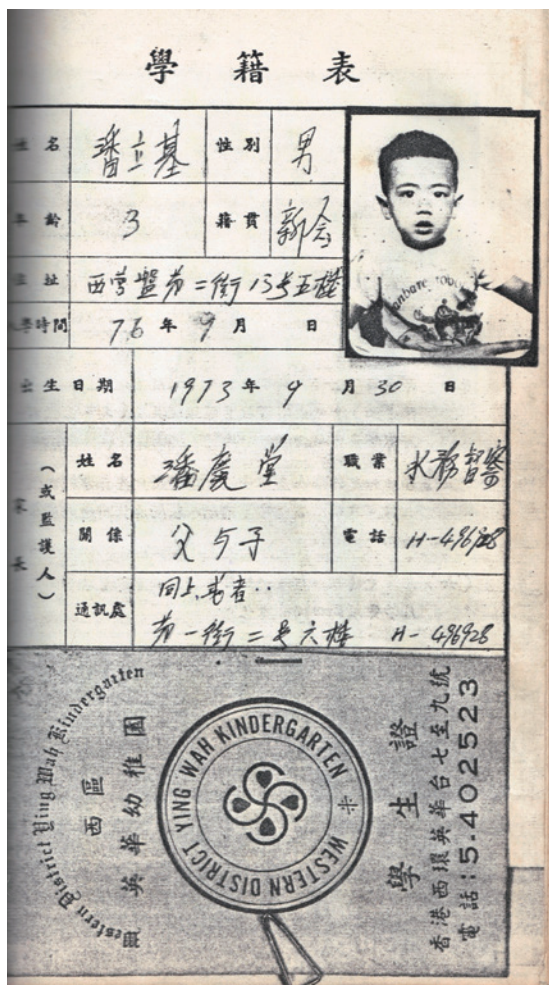 學籍表
姓名 潘立基 性別 男
年齡 3 籍貫 新会
住址 西营盤第二街13号五楼
入學時間 76年9月 日
出生日期 1973年9月30日
家長（或監護人）
姓名 潘慶堂 職業
關係 父与子 電話 H-496928
通訊處 同上,或者..
第一街二号六楼 H-496928
Western District Ying Wah Kindergarten
西區
英華幼稚園
YING WAH KINDERGARTEN
WESTERN DISTRICT
學生證
香港西環英華台七至九號
電話:5.402523